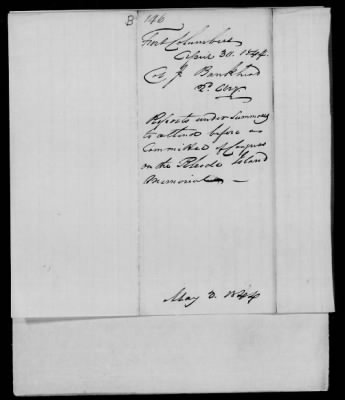 B 146
Fort Columbus
April 30. 1844.
Col. J. Bankhead
2d. Arty.
Reports under summons
to attend before a
Committee of Congress
on the Rhode Island
Memorial —
May 3. 1844